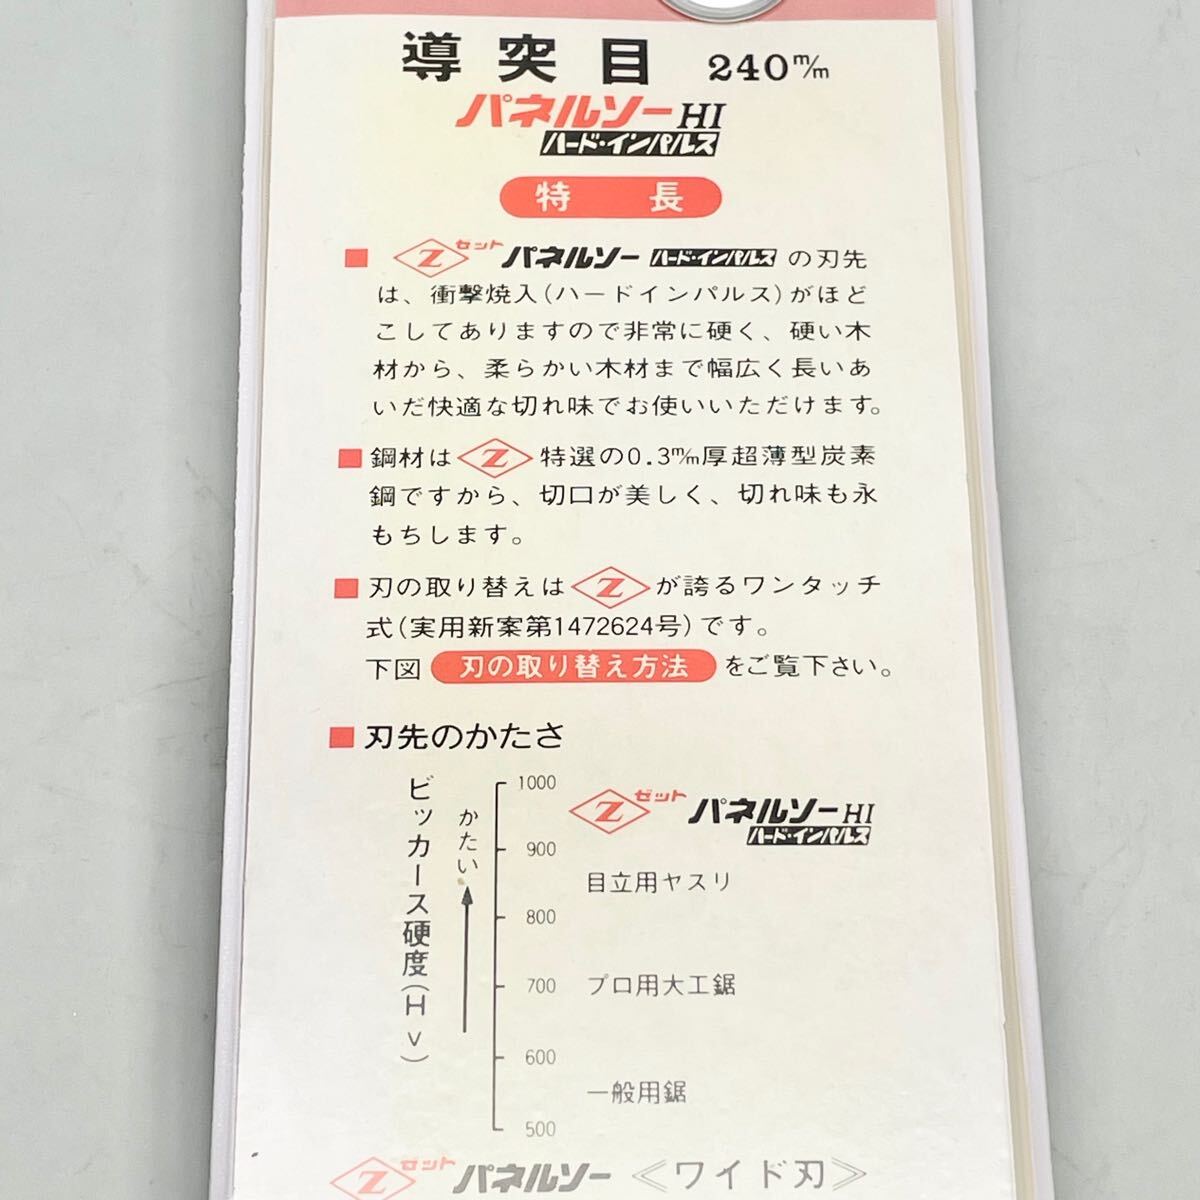 導突目 240m/m
パネルソーHI
ハード・インパルス
特長
■ Z ゼット パネルソー ハード・インパルス の刃先
は、衝撃焼入(ハードインパルス)がほど
こしてありますので非常に硬く、硬い木
材から、柔らかい木材まで幅広く長いあ
いだ快適な切れ味でお使いいただけます。
■ 鋼材は Z 特選の0.3m/m厚超薄型炭素
鋼ですから、切口が美しく、切れ味も永
もちします。
■ 刃の取り替えは Z が誇るワンタッチ
式(実用新案第1472624号)です。
下図 刃の取り替え方法 をご覧下さい。
■ 刃先のかたさ
ビッカース硬度(Hv)
かたい
1000
Z ゼット パネルソーHI
ハード・インパルス
900
目立用ヤスリ
800
700 プロ用大工鋸
600
一般用鋸
500
Z ゼット パネルソー 《ワイド刃》